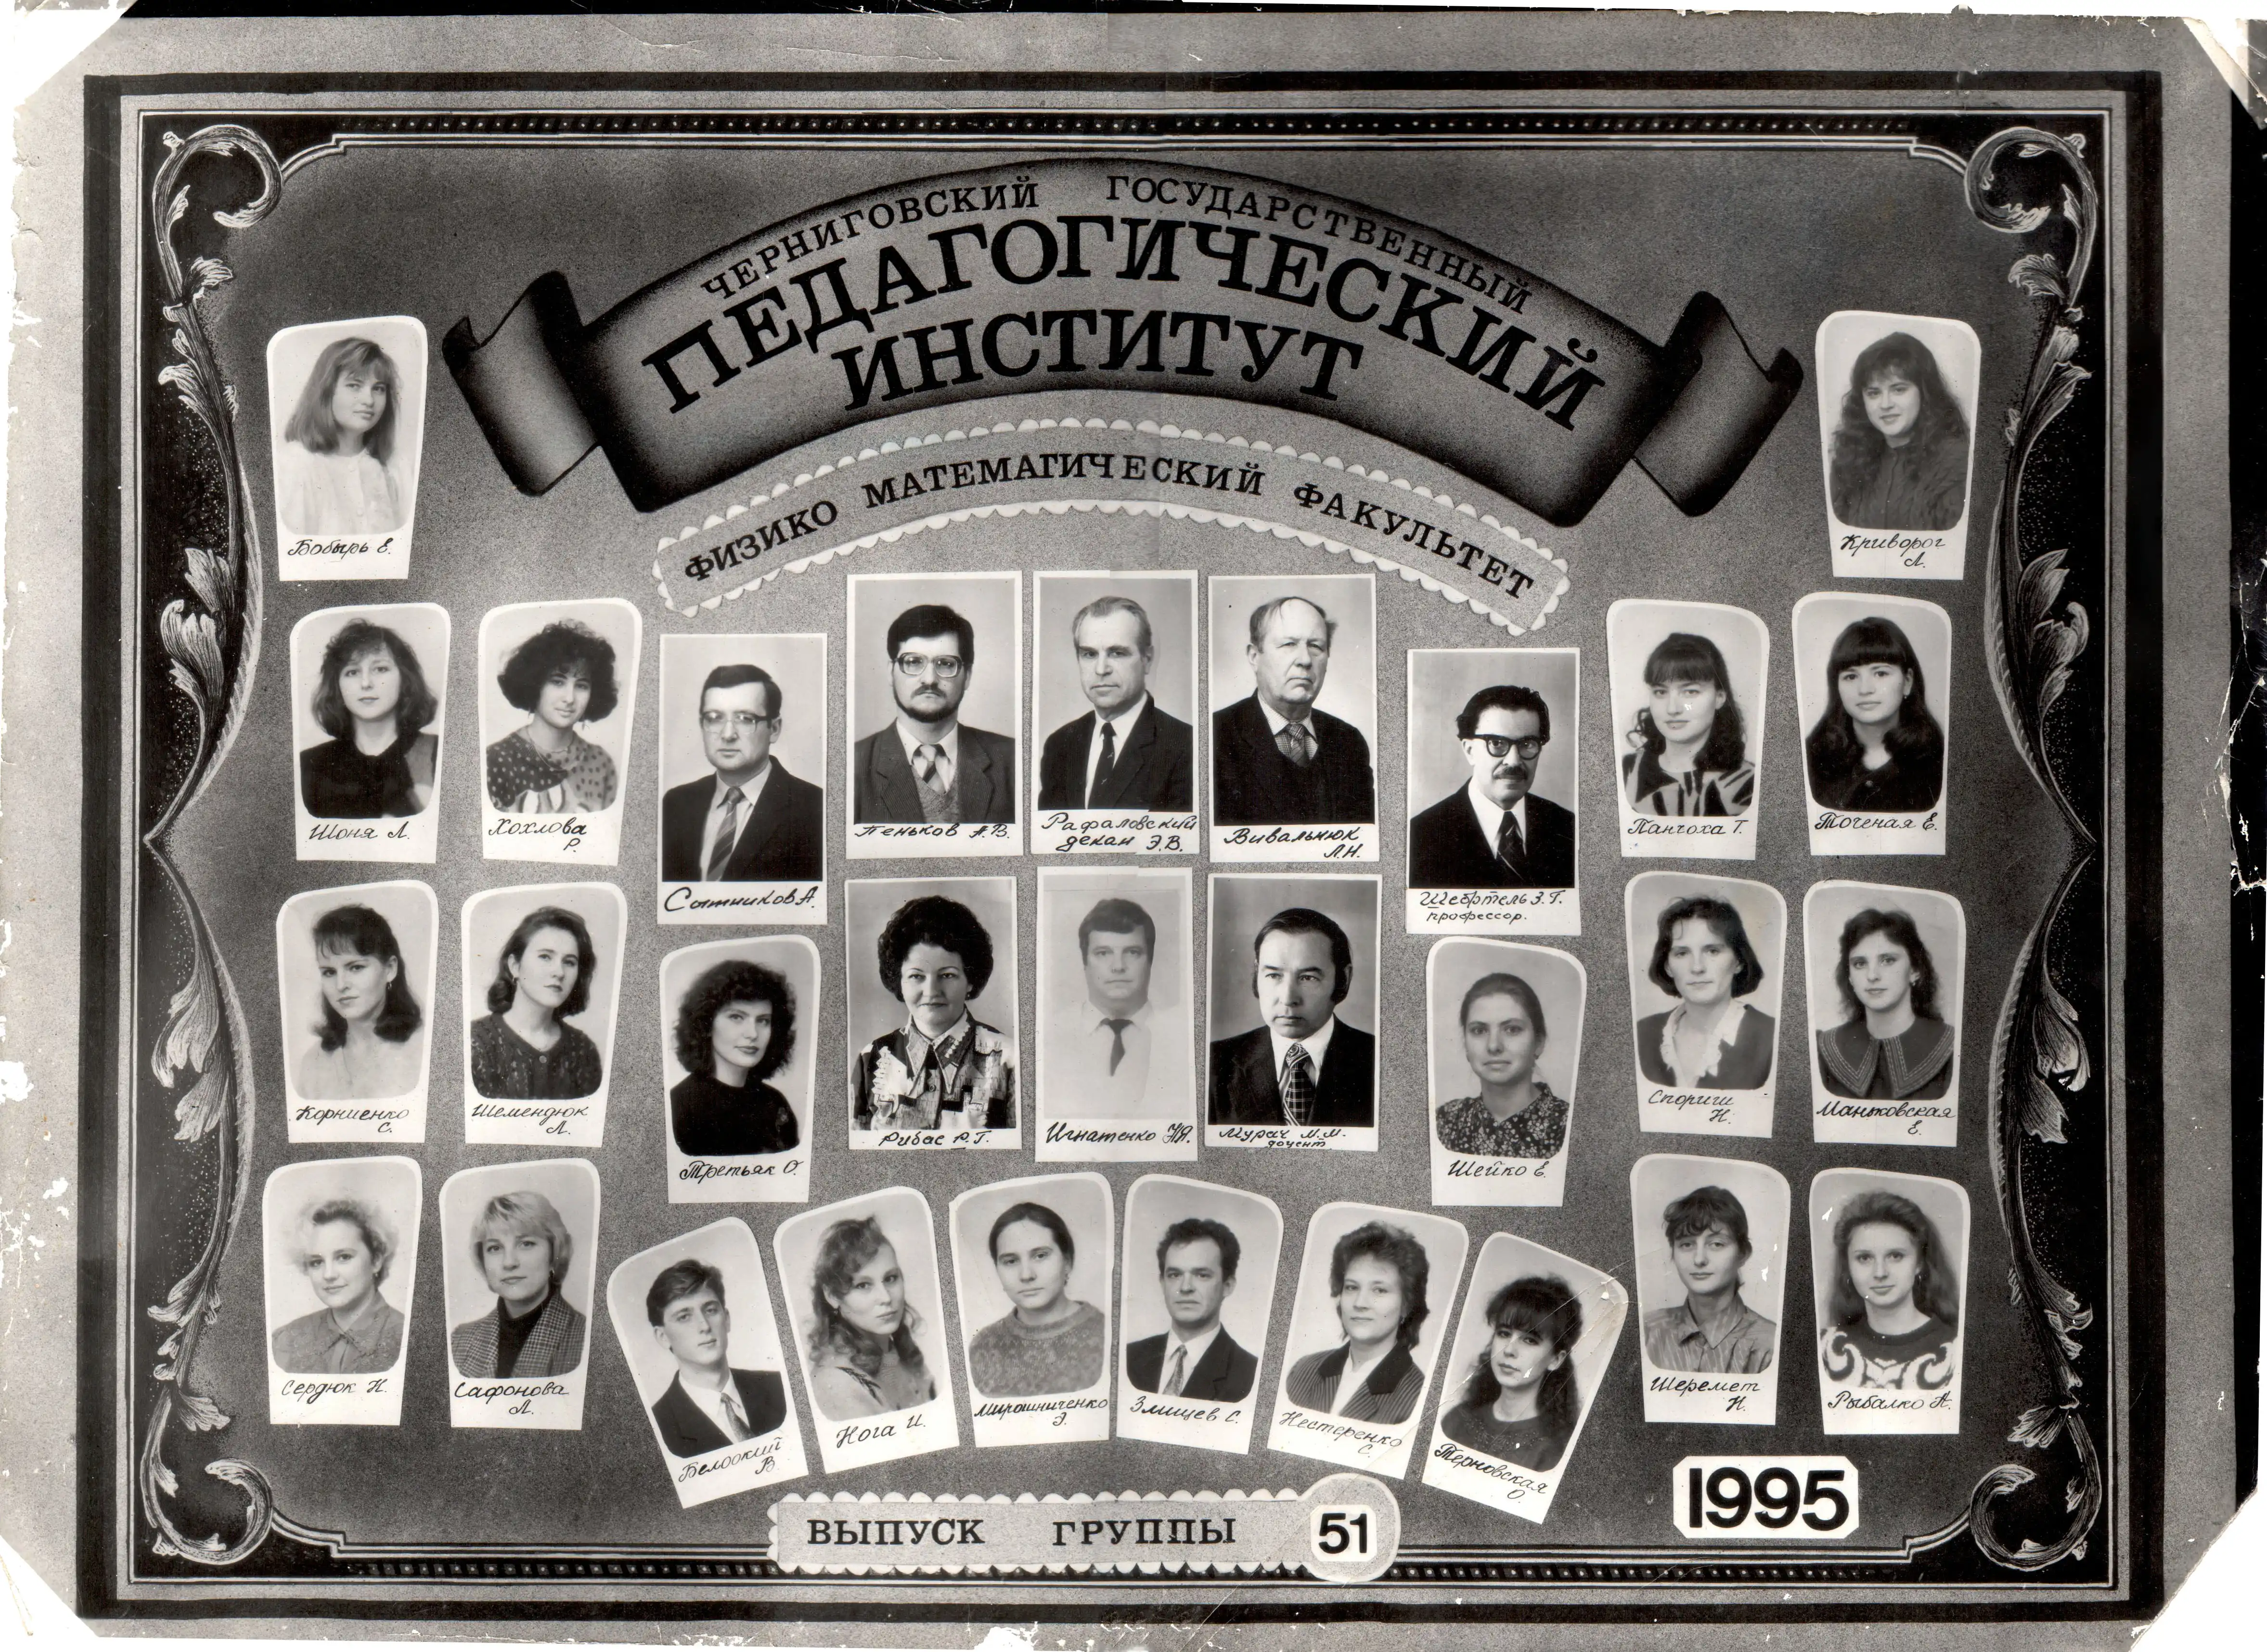 ЧЕРНИГОВСКИЙ ГОСУДАРСТВЕННЫЙ
ПЕДАГОГИЧЕСКИЙ
ИНСТИТУТ
ФИЗИКО МАТЕМАГИЧЕСКИЙ ФАКУЛЬТЕТ
Бобырь Е.
Криворог
Л.
Шоня Л.
Хохлова
Р.
Сытников А.
Пеньков А.В.
Рафаловский
декан Э.В.
Вивальнюк
Л.Н.
Шебртель З.Г.
профессор.
Панчоха Т.
Точеная Е.
Корниенко
С.
Шемендюк
Л.
Третьяк О.
Рибас Р.Г.
Игнатенко Н.Я.
Мурач М.М.
доцент
Шейко Е.
Спориш
Н.
Маньковская
Е.
Сердюк Н.
Сафонова
Л.
Белоокий
В.
Нога И.
Мирошниченко
Э.
Злищев С.
Нестеренко
С.
Терновская
О.
Шеремет
Н.
Рыбалко А.
1995
ВЫПУСК ГРУППЫ 51